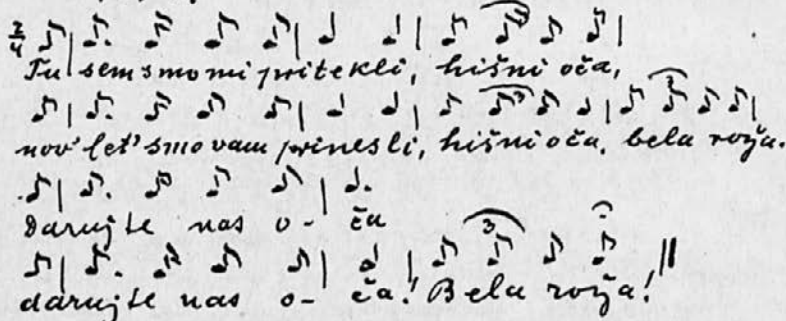 2/4
Tu sem smo mi pritekli, hišni oča,
nov' let' smo vam prinesli, hišni oča, bela roža.
darujte nas o- ča
3
darujte nas o- ča! Bela roža!